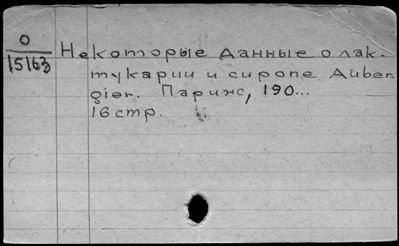 О
15163
Некоторые данные о лак-
тукарии и сиропе Auber-
gier. Париж, 190...
16 стр.